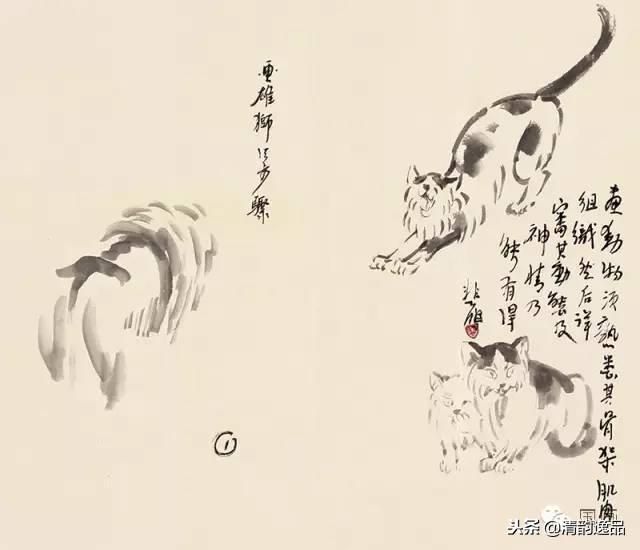 画雄狮之步骤
画动物须熟悉其骨架肌肉
组织然后详
审其动态及
神情乃
能有得
悲鴻
①
头条@清韵逸品